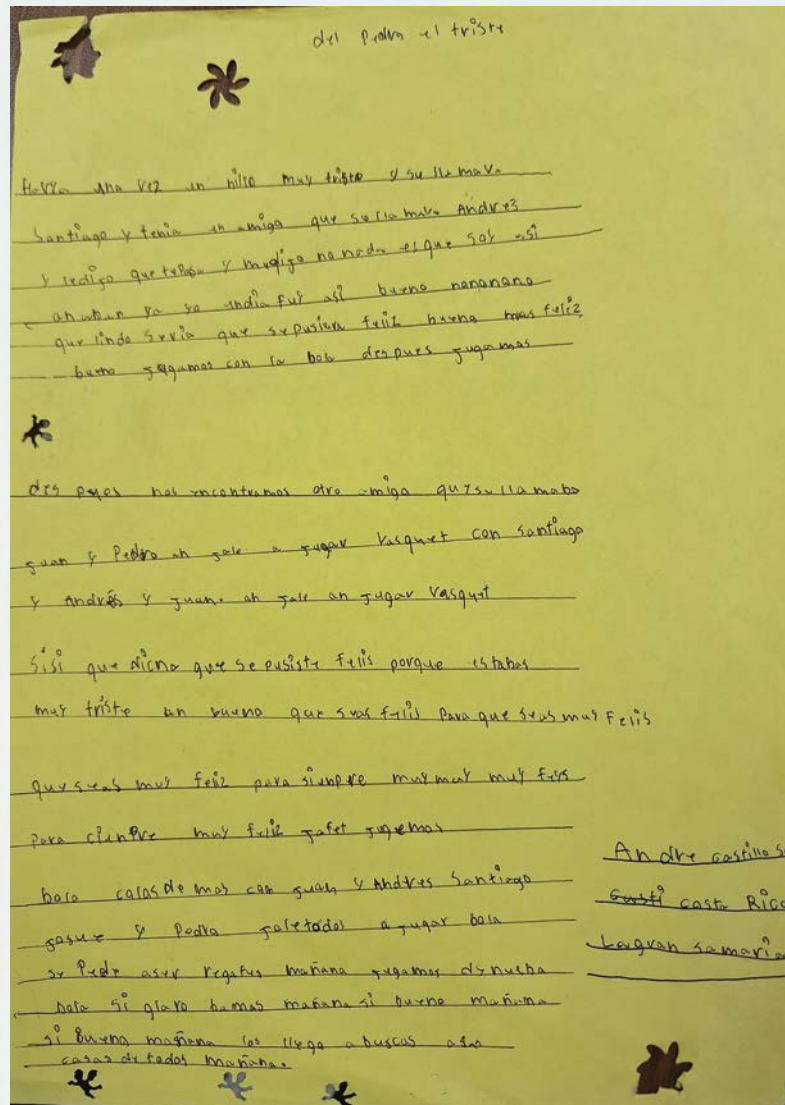 del Pedro el triste
una vez un niño muy triste y su llamava
Santiago y tenia un amigo que se llamaba Andres
y y no nada es que soy asi
ya yo fuy asi bueno nonanano
que lindo seria que se pusiera feliz bueno mas feliz
bueno jugamos con la bola despues jugamos
des pues nos encontramos otro amigo que su llamaba
juan y Pedro ah jale a jugar Vasquet con Santiago
y Andrés y juan. ah jale an jugar Vasquet
sisi que que se pusiste felis porque estabas
muy triste an bueno que seas felis para que seas muy Felis
que seas muy feliz para sienpre muy muy muy
para cienpre muy feliz jugemos
bola con juan y Andres Santiago
josue y Pedro jale todos a jugar bola
se Pede aser mañana jugamos de nueba
bola si glaro bamos mañana si bueno mañana
si Bueno mañana los llego a buscas
casas de todos mañana.
Andre castillo
costa Rica
samaria